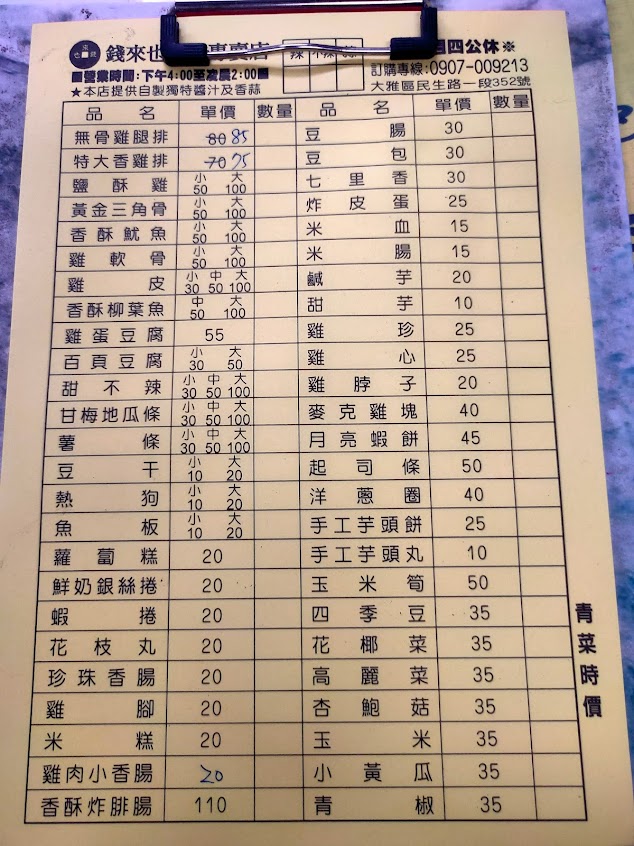 錢來也 專賣店
四公休※
辣 不辣
■營業時間:下午4:00至凌晨2:00■
訂購專線:0907-009213
★本店提供自製獨特醬汁及香蒜
大雅區民生路一段352號
品名 單價 數量 品名 單價 數量
無骨雞腿排 80 85 豆腸 30
特大香雞排 70 75 豆包 30
鹽酥雞 小50 大100 七里香 30
黃金三角骨 小50 大100 炸皮蛋 25
香酥魷魚 小50 大100 米血 15
雞軟骨 小50 大100 米腸 15
雞皮 小30 中50 大100 鹹芋 20
香酥柳葉魚 中50 大100 甜芋 10
雞蛋豆腐 55 雞珍 25
百頁豆腐 小30 大50 雞心 25
甜不辣 小30 中50 大100 雞脖子 20
甘梅地瓜條 小30 中50 大100 麥克雞塊 40
薯條 小30 中50 大100 月亮蝦餅 45
豆干 小10 大20 起司條 50
熱狗 小10 大20 洋蔥圈 40
魚板 小10 大20 手工芋頭餅 25
蘿蔔糕 20 手工芋頭丸 10
鮮奶銀絲捲 20 玉米筍 50
蝦捲 20 四季豆 35
花枝丸 20 花椰菜 35
珍珠香腸 20 高麗菜 35
雞腳 20 杏鮑菇 35
米糕 20 玉米 35
雞肉小香腸 20 小黃瓜 35
香酥炸腓腸 110 青椒 35
青菜時價